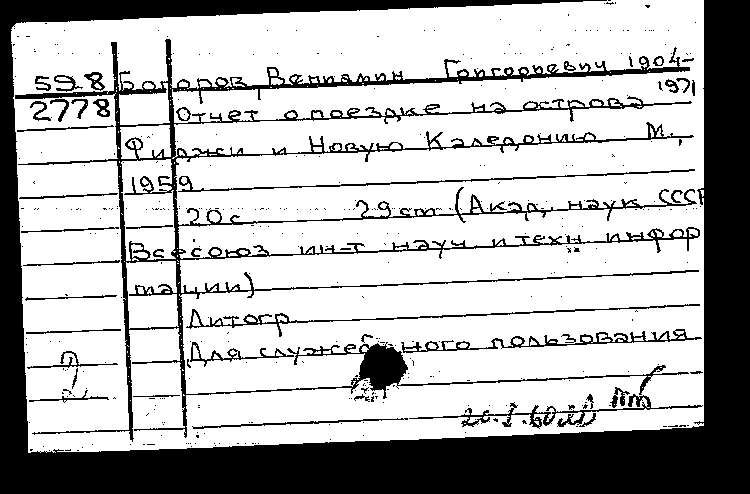 598 Богоров, Вениамин Григорьевич 1904-
1971
2778 Отчет о поездке на острова
Фиджи и Новую Каледонию М.,
1959
20 с 29 cm (Акад, наук СССР
Всесоюз ин-т науч и техн инфор
мации)
Литогр
Для служебного пользования
2